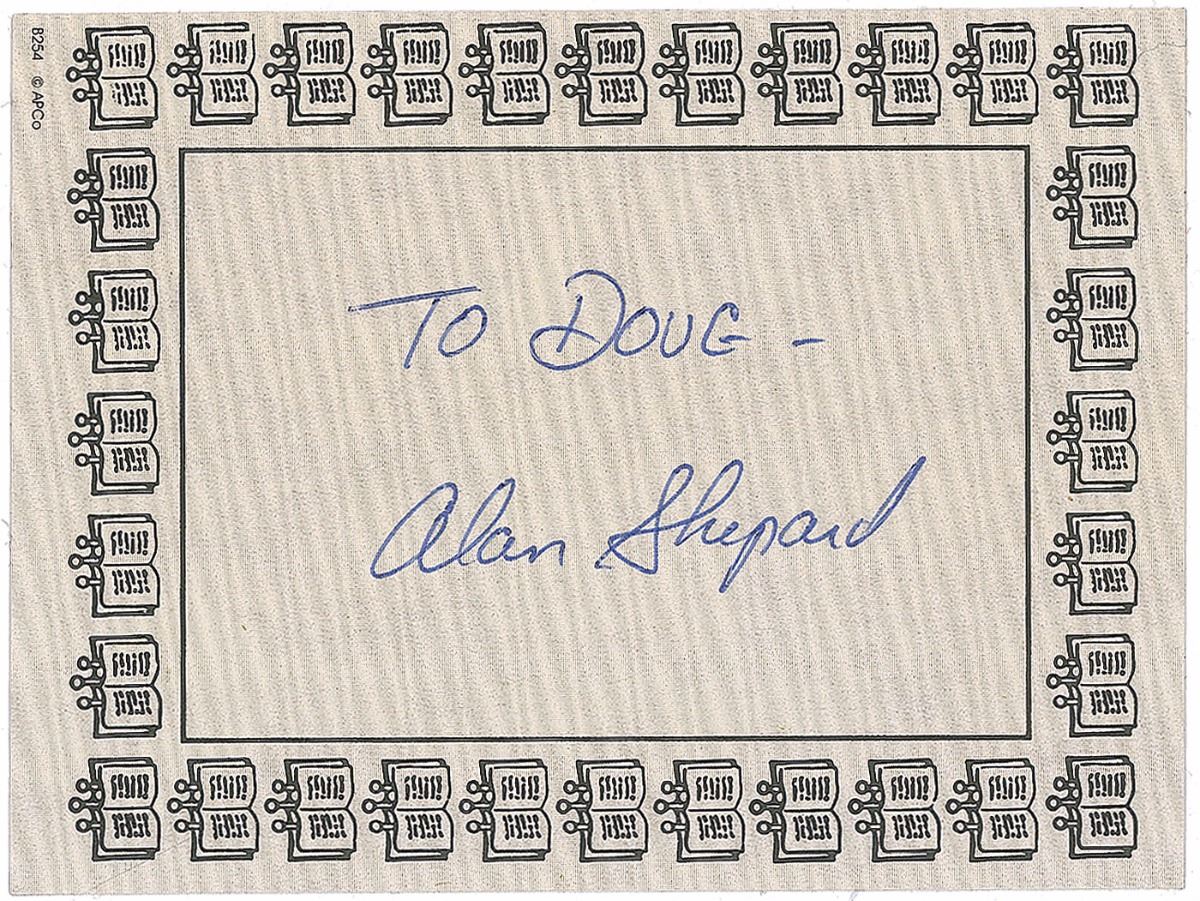 B2554 © APCo
TO DOUG -
Alan Shepard